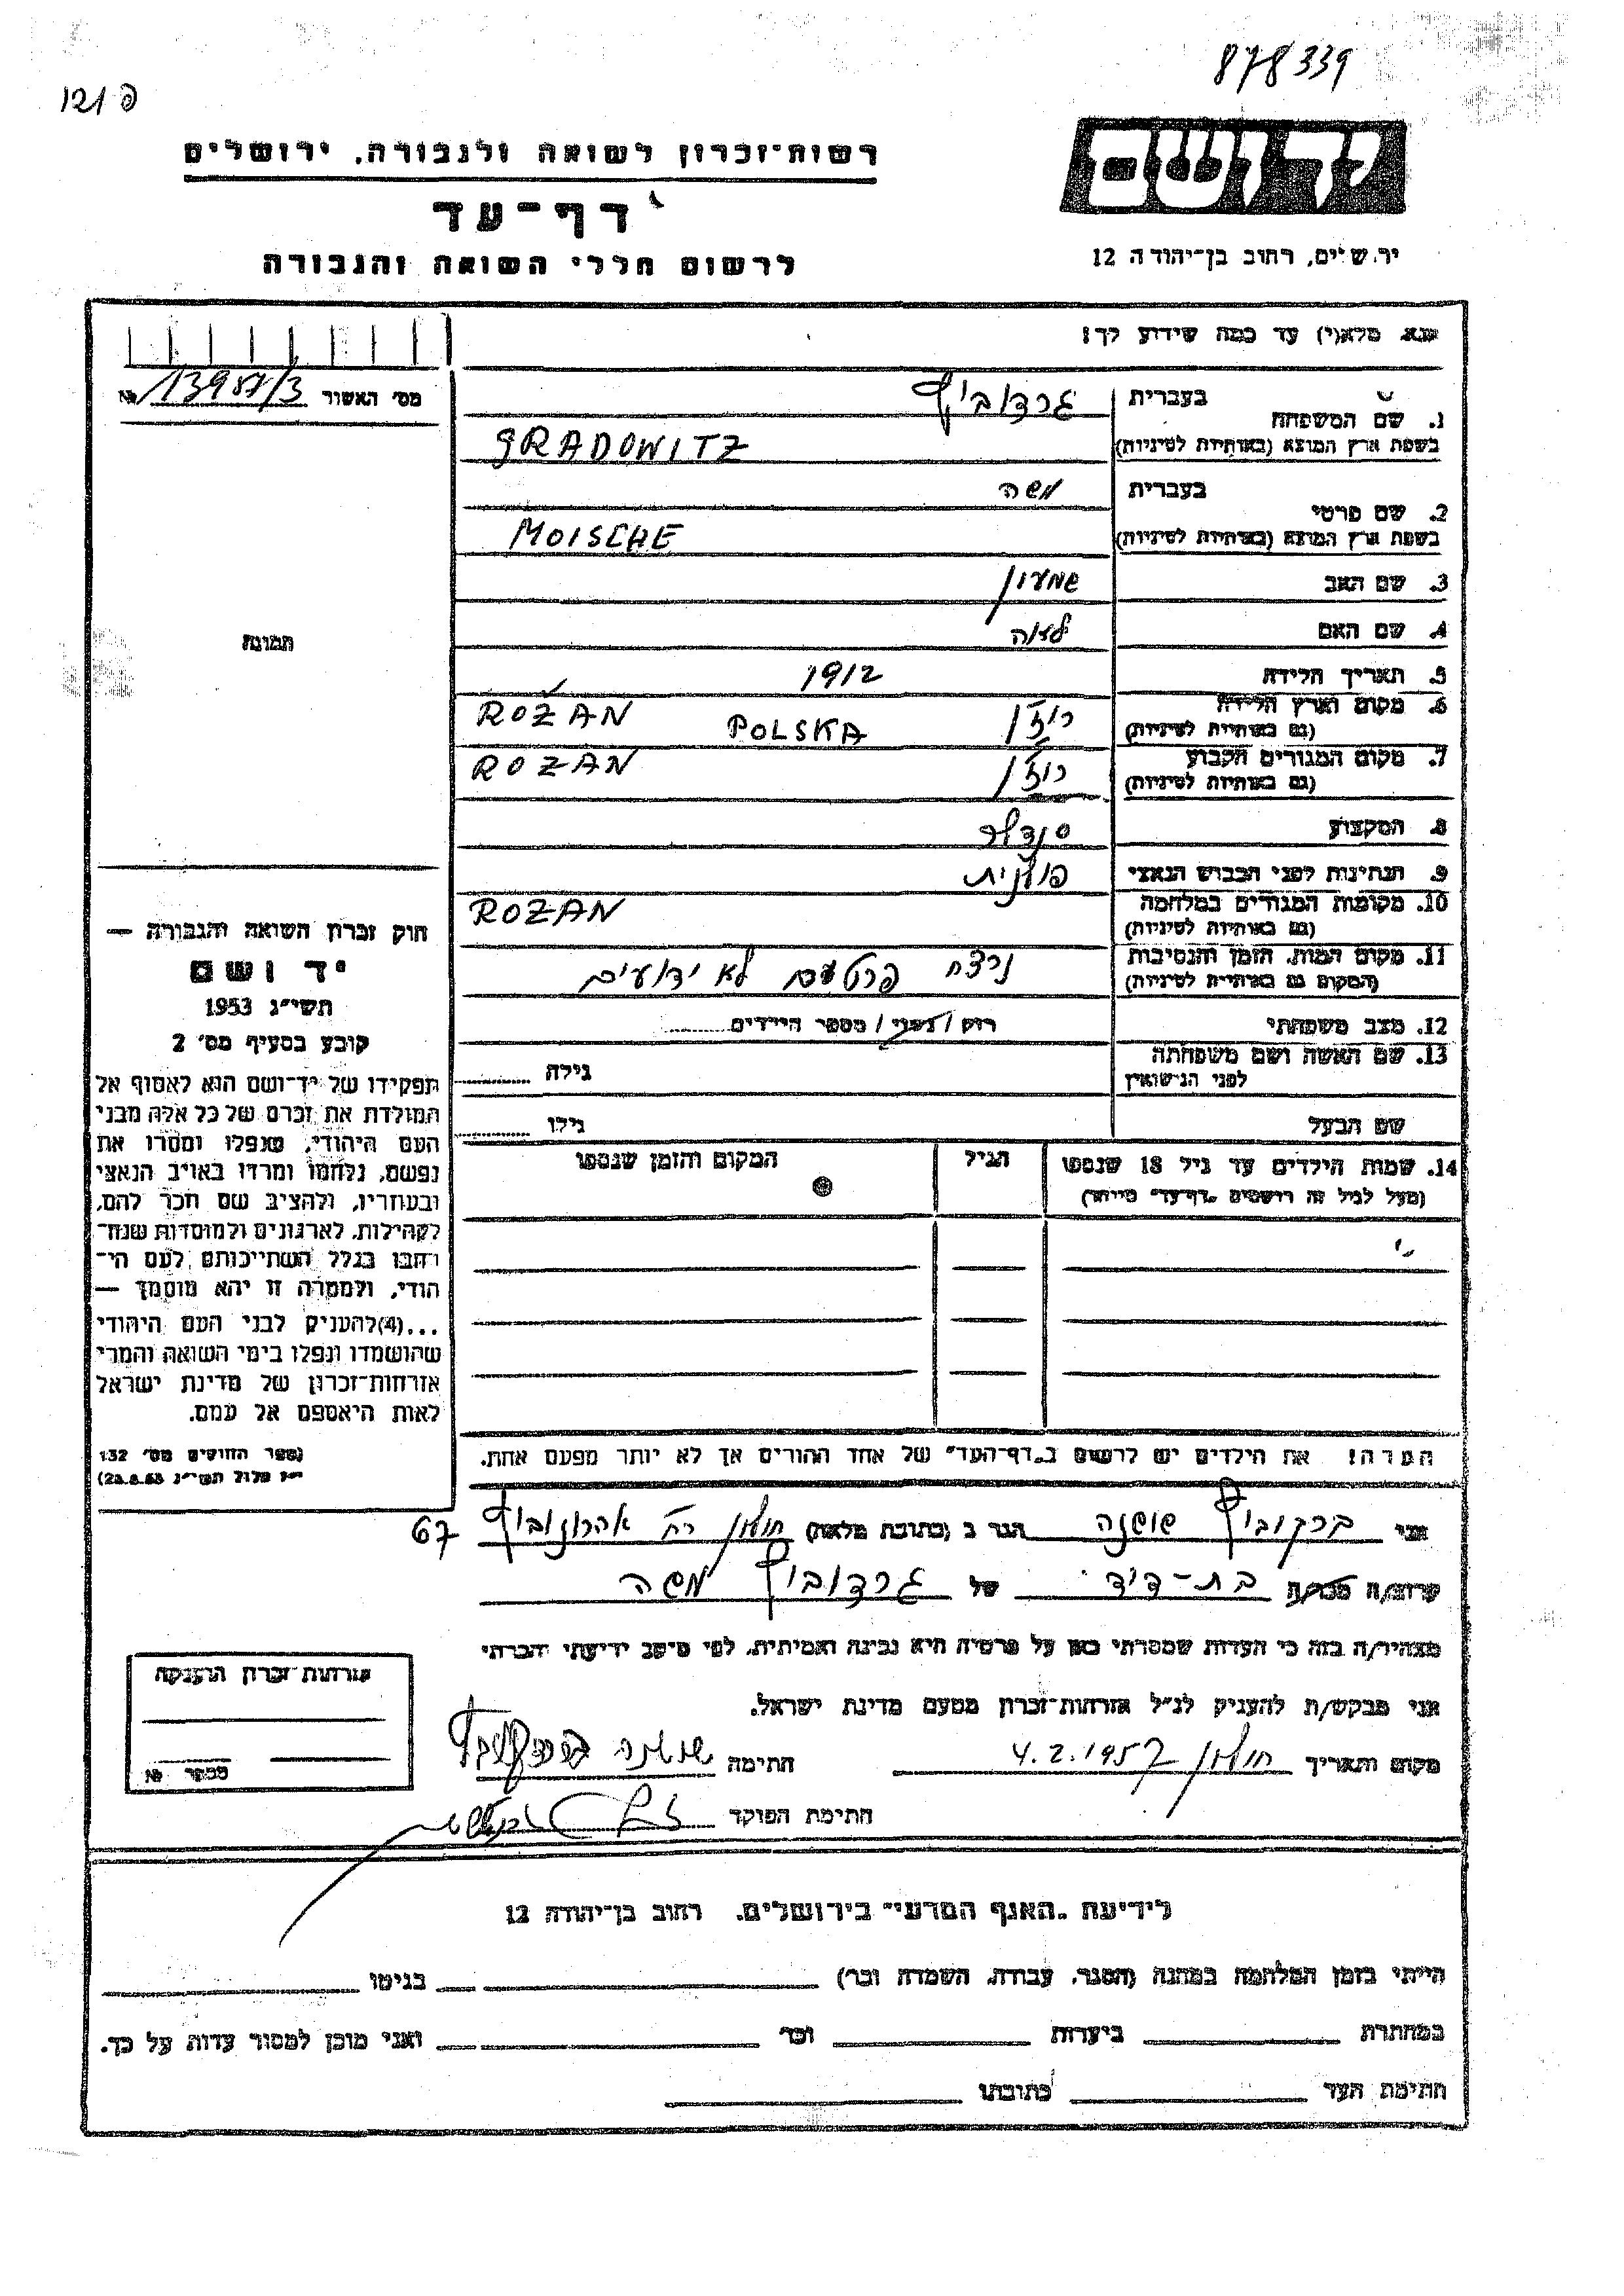 878339
פ 121
יד ושם
רשות־זכרון לשואה ולגבורה, ירושלים
דף־עד
לרשום חללי השואה והגבורה
ירושלים, רחוב בן־יהודה 12
נא מלא(י) עד כמה שידוע לך!
מס׳ האשור 13987/3 №
1. שם המשפחה בעברית גרדוביץ
בשפת ארץ המוצא (באותיות לטיניות) GRADOWITZ
2. שם פרטי בעברית משה
בשפת ארץ המוצא (באותיות לטיניות) MOISCHE
3. שם האב שמעון
4. שם האם לאה
5. תאריך הלידה 1912
6. מקום וארץ הלידה (גם באותיות לטיניות) רוז'ן POLSKA ROŻAN
7. מקום המגורים הקבוע (גם באותיות לטיניות) רוז'ן ROZAN
8. המקצוע סנדלר
9. הנתינות לפני הכבוש הנאצי פולנית
10. מקומות המגורים במלחמה (גם באותיות לטיניות) ROZAN
11. מקום המות, הזמן והנסיבות (המקום גם באותיות לטיניות) נרצח פרטים לא ידועים
12. מצב משפחתי רווק / נשוי / מספר הילדים
13. שם האשה ושם משפחתה לפני הנישואין גילה
שם הבעל גילו
14. שמות הילדים עד גיל 18 שנספו
(מעל לגיל זה רושמים „דף־עד״ מיוחד)
הגיל
המקום והזמן שנספו
הערה! את הילדים יש לרשום ב„דף־העד״ של אחד ההורים אך לא יותר מפעם אחת.
תמונה
חוק זכרון השואה והגבורה —
יד ושם
תשי״ג 1953
קובע בסעיף מס׳ 2
תפקידו של יד־ושם הוא לאסוף אל
המולדת את זכרם של כל אלה מבני
העם היהודי, שנפלו ומסרו את
נפשם, נלחמו ומרדו באויב הנאצי
ובעוזריו, ולהציב שם וזכר להם,
לקהילות, לארגונים ולמוסדות שנח־
רבו בגלל השתייכותם לעם הי־
הודי, ולמטרה זו יהא מוסמך —
...(4) להעניק לבני העם היהודי
שהושמדו ונפלו בימי השואה והמרי
אזרחות־זכרון של מדינת ישראל
לאות היאספם אל עמם.
(ספר החוקים מס׳ 132
אלול תשי״ג 28.8.53)
אני ברקוביץ שושנה הגר ב (כתובת מלאה) חולון רח׳ אהרונוביץ 67
קרוב/ה מכר/ה בת-דוד של גרדוביץ משה
מצהיר/ה בזה כי העדות שמסרתי כאן על פרטיה היא נכונה ואמיתית, לפי מיטב ידיעתי והכרתי
אני מבקש/ת להעניק לנ״ל אזרחות־זכרון מטעם מדינת ישראל.
מקום ותאריך חולון 4.2.1957 חתימה שושנה ברקוביץ
חתימת הפוקד
אזרחות זכרון הוענקה
מספר №
לידיעת „האגף המדעי״ בירושלים, רחוב בן־יהודה 12
הייתי בזמן המלחמה במחנה (הסגר, עבודה, השמדה וכו׳) בגיטו
במחתרת ביערות וכו׳ ואני מוכן למסור עדות על כך.
חתימת העד כתובתו